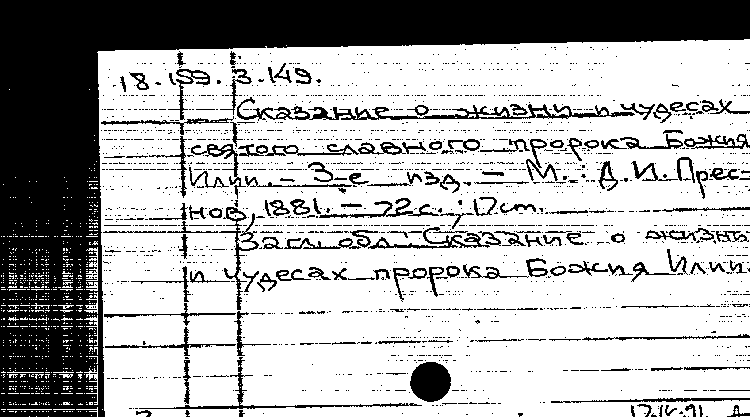 18.159.3.149.
Сказание о жизни и чудесах
святого славного пророка Божия
Илии. – 3-е изд. – М.: Д.И. Прес-
нов, 1881. – 72с.; 17см.
Загл. обл.: Сказание о жизни
и чудесах пророка Божия Илии